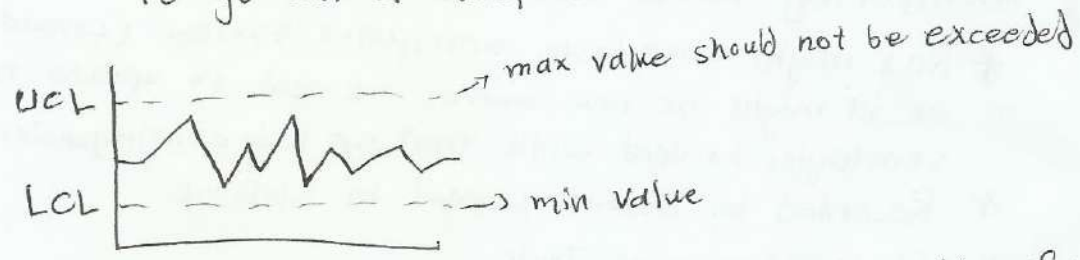 max value should not be exceeded
UCL
LCL
min value